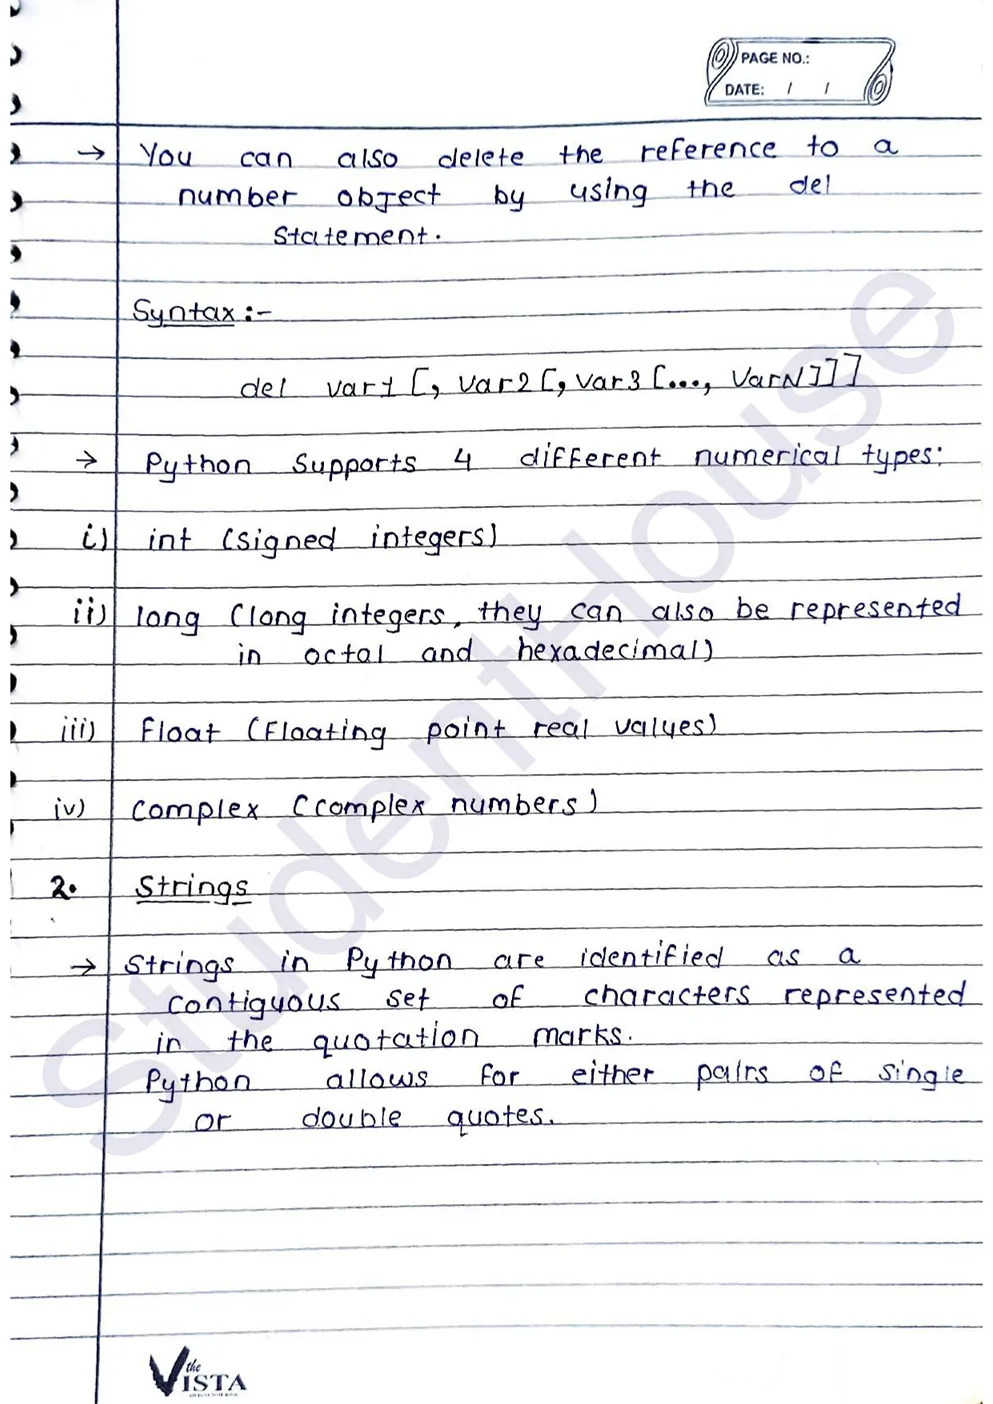 PAGE NO.:
DATE: / /
→ You can also delete the reference to a
number object by using the del
statement.
Syntax :-
del var1 [, var2 [, var3 [..., VarN]]]
→ Python supports 4 different numerical types:
i) int (signed integers)
ii) long (long integers, they can also be represented
in octal and hexadecimal)
iii) float (floating point real values)
iv) complex (complex numbers)
2. Strings
→ Strings in Python are identified as a
contiguous set of characters represented
in the quotation marks.
Python allows for either pairs of single
or double quotes.
StudentHouse
the
VISTA